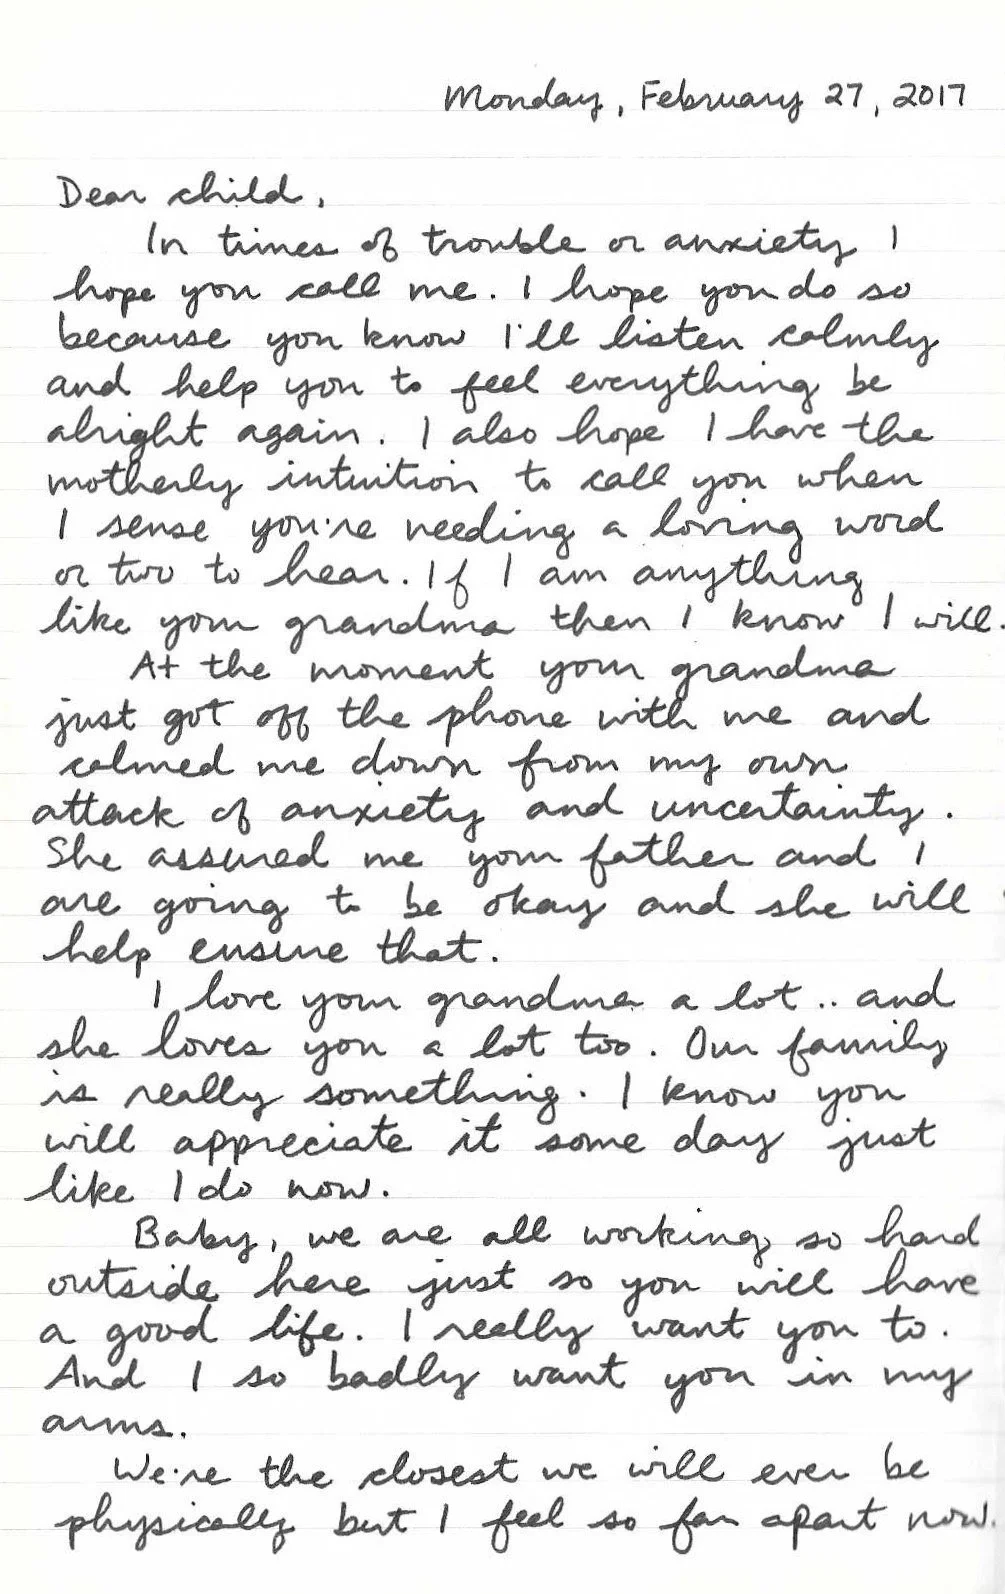 Monday, February 27, 2017
Dear child,
In times of trouble or anxiety I
hope you call me. I hope you do so
because you know I'll listen calmly
and help you to feel everything be
alright again. I also hope I have the
motherly intuition to call you when
I sense you're needing a loving word
or two to hear. If I am anything
like your grandma then I know I will.
At the moment your grandma
just got off the phone with me and
calmed me down from my own
attack of anxiety and uncertainty.
She assured me your father and I
are going to be okay and she will
help ensure that.
I love your grandma a lot.. and
she loves you a lot too. Our family
is really something. I know you
will appreciate it some day just
like I do now.
Baby, we are all working so hard
outside here just so you will have
a good life. I really want you to.
And I so badly want you in my
arms.
We're the closest we will ever be
physically but I feel so far apart now.